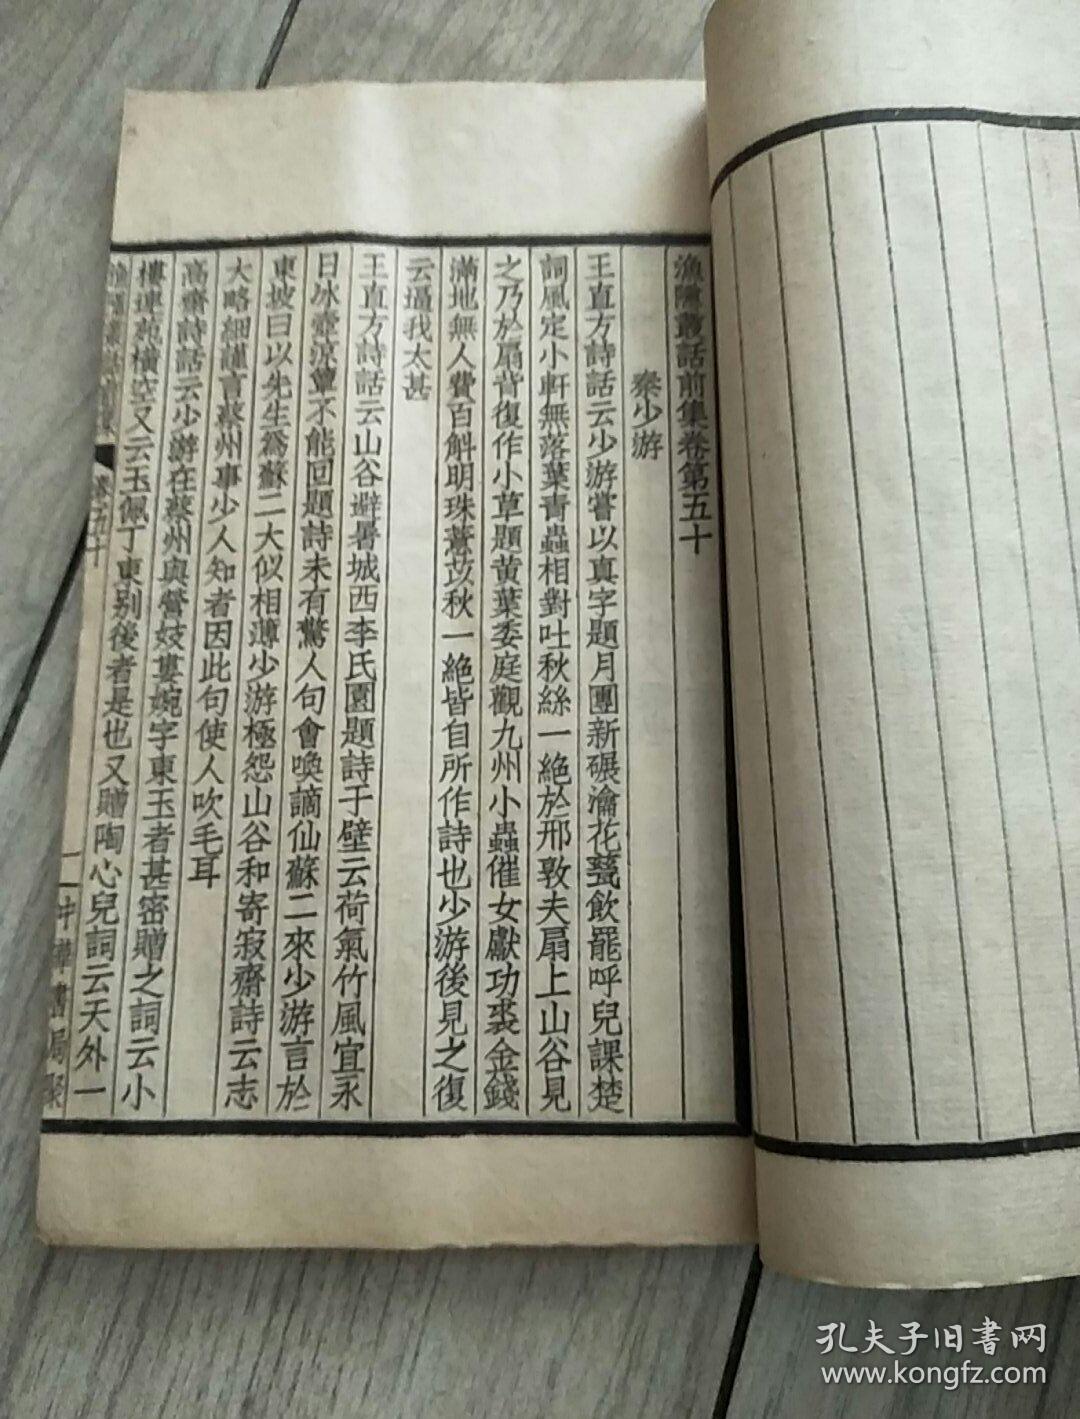 漁隱叢話前集卷第五十
秦少游
王直方詩話云少游嘗以真字題月團新碾瀹花甆飲罷呼兒課楚
詞風定小軒無落葉青蟲相對吐秋絲一絕於邢敦夫扇上山谷見
之乃於扇背復作小草題黄葉委庭觀九州小蟲催女獻功裘金錢
滿地無人費百斛明珠薏苡秋一絕皆自所作詩也少游後見之復
云逼我太甚
王直方詩話云山谷避暑城西李氏園題詩于壁云荷氣竹風宜永
日冰壺涼簟不能回題詩未有驚人句會喚謫仙蘇二來少游言於
東坡曰以先生爲蘇二大似相薄少游極怨山谷和寄寂齋詩云志
大略細謹言蔡州事少人知者因此句使人吹毛耳
高齋詩話云少游在蔡州與營妓婁婉字東玉者甚密贈之詞云小
樓連苑橫空又云玉佩丁東别後者是也又贈陶心兒詞云天外一
漁隱叢話前集 卷五十 一 中華書局聚
孔夫子旧書网
www.kongfz.com